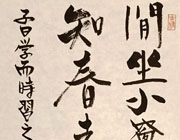 閒坐小窗
知春去
子曰学而時習之